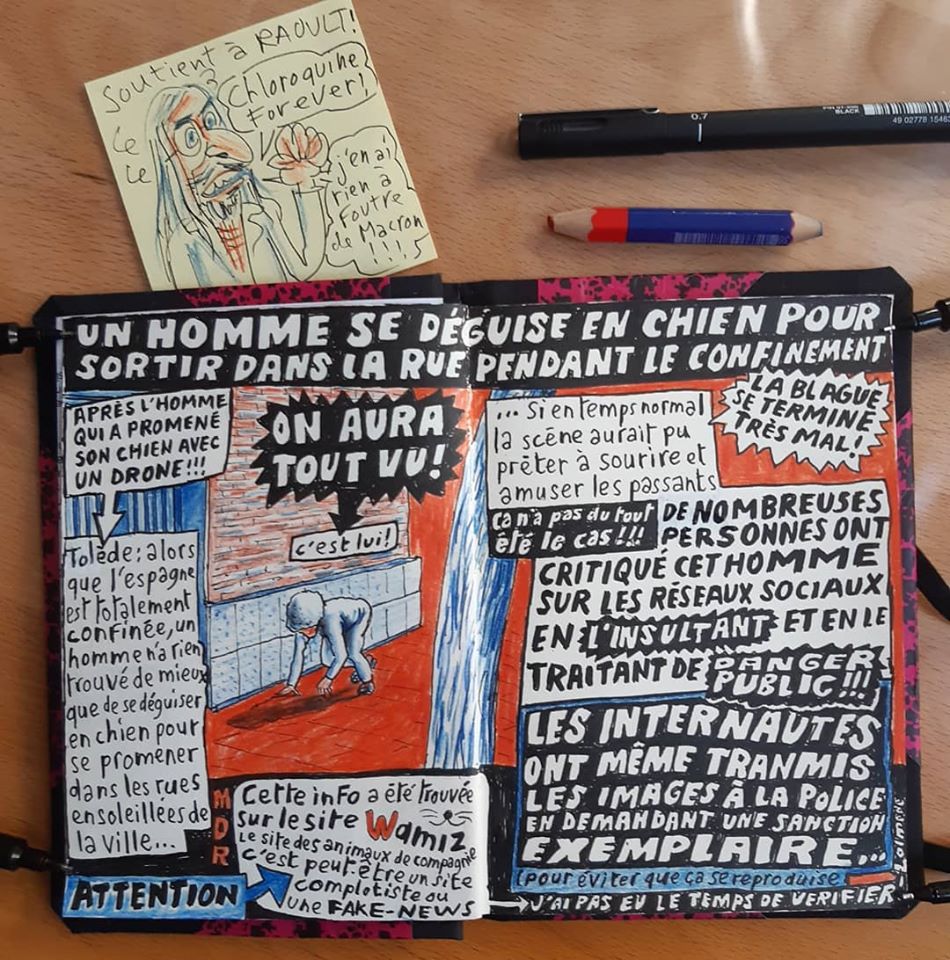 Soutient à RAOULT!
Chloroquine
Forever!
Le
Le
j'en ai
rien à
Foutre
de Macron
!!!!
0.7
BLACK
UN HOMME SE DÉGUISE EN CHIEN POUR
SORTIR DANS LA RUE PENDANT LE CONFINEMENT
APRÈS L'HOMME
QUI A PROMENÉ
SON CHIEN AVEC
UN DRONE!!!
ON AURA
TOUT VU!
c'est lui!
Tolède: alors
que l'espagne
est totalement
confinée, un
homme n'a rien
trouvé de mieux
que de se déguiser
en chien pour
se promener
dans les rues
ensoleillées de
la ville...
MDR
Cette info a été trouvée
sur le site Wamiz
le site des animaux de compagnie
c'est peut-être un site
complotiste ou
une FAKE-NEWS
ATTENTION
... Si en temps normal
la scène aurait pu
prêter à sourire et
amuser les passants
ça n'a pas du tout
été le cas!!!
LA BLAGUE
SE TERMINE
TRÈS MAL!
DE NOMBREUSES
PERSONNES ONT
CRITIQUÉ CET HOMME
SUR LES RÉSEAUX SOCIAUX
EN L'INSULTANT ET EN LE
TRAITANT DE DANGER
PUBLIC!!!
LES INTERNAUTES
ONT MÊME TRANMIS
LES IMAGES À LA POLICE
EN DEMANDANT UNE SANCTION
EXEMPLAIRE...
(pour éviter que ça se reproduise
J'AI PAS EU LE TEMPS DE VERIFIER